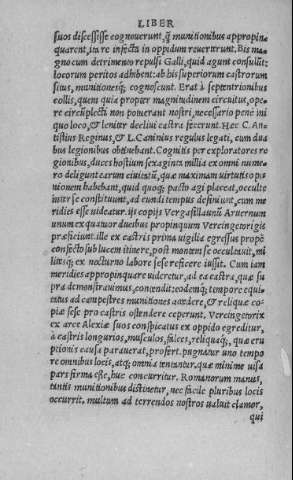 LIBER
suos discessisse cognouerunt, q̃ munitionibus appropin=
quarent, ita re infecta in oppidum reuertunt. Bis ma=
gno cum detrimento repulsi Galli, quid agant consulũt:
locorum peritos adhibent: ab his superiorum castrorum
situs, munitionesq; cognoscunt. Erat à septentrionibus
collis, quem quia propter magnitudinem circuitus, ope=
re circũplecti non potuerant nostri, necessario penè ini
quo loco, & leniter decliui castra fecerunt. Hæc C. An=
tistius Reginus, & L. Caninius regulus legati, cum dua
bus legionibus obtinebant. Cognitis per exploratores ro
gionibus, duces hostium sexaginta millia ex omni nume=
ro deligunt earum ciuitatũ, quæ maximam uirtutis opi=
nionem habebant, quid quoq; pacto agi placeat, occulte
inter se constituunt, ad eundi tempus definiunt, cum me
ridies esse uideatur. ijs copijs Vergasillaunũ Aruernum
unum ex quatuor ducibus propinquum Vercingentorigis
præficiunt. ille ex castris prima uigilia egressus propè
confecto sub lucem itinere, post montem se occultauit, mi
litesq; ex nocturno labore sese reficere iussit. Cum iam
meridies appropinquare uideretur, ad ea castra, quæ su
pra demonstrauimus, contendit: eodemq; tempore equi=
tatus ad campestres munitiones accedere, & reliquæ co=
piæ sese pro castris ostendere ceperunt. Vercingetorix
ex arce Alexiæ suos conspicatus ex oppido egreditur,
à castris longurios, musculos, falces, reliquaq;, quæ eru
ptionis causa parauerat, profert. pugnatur uno tempo
re omnibus locis, atq; omnia tentantur. quæ minime uisa
pars firma est, huc concurritur. Romanorum manus,
tantis munitionibus distinetur, nec facile pluribus locis
occurrit, multum ad terrendos nostros ualuit clamor,
qui